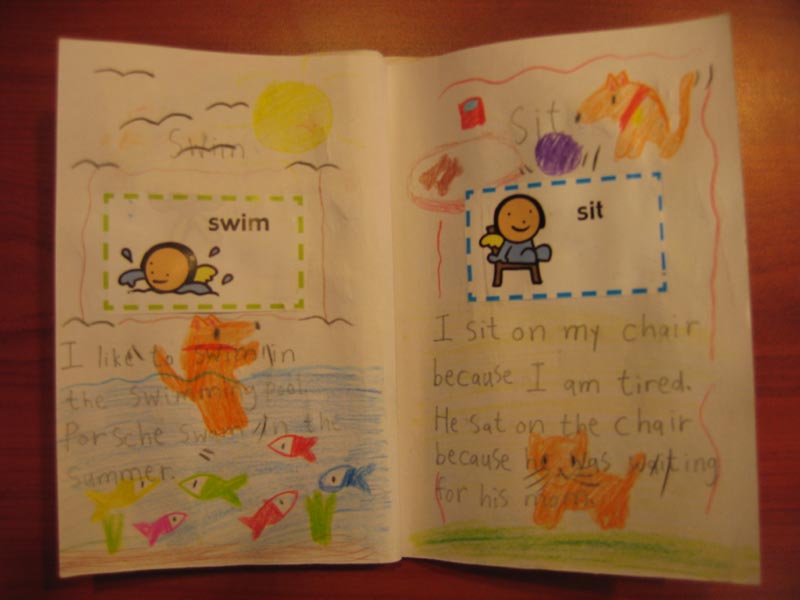 Swim
swim
I like to swim in
the swimming pool.
Porsche swam in the
summer.
Sit
sit
I sit on my chair
because I am tired.
He sat on the chair
because he was waiting
for his mom.